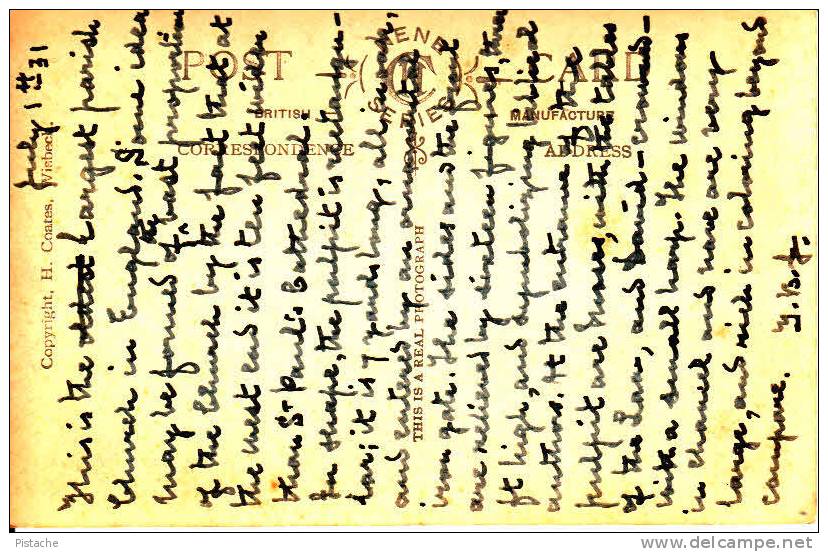 July 1st 31
This is the oldest Largest parish
Church in England. Some idea
may be formed of the vast proportion
of the Church by the fact that at
the west end it is ten feet wider
than St Paul's Cathedral
In shape, the pulpit is rectangu-
lar; it is 7 yards long, all in oak,
and entered by an ornamental
iron gate. The sides and the front
are relieved by sixteen figures, two
ft high, and symbolizing biblical
authors. At the entrance to the
pulpit are Moses, with the tables
of the Law, and David - crowned -
with a small harp. The windows
in chancel and nave are very
large, and rich in coloring beyond
compare. T.B.J.
POST CARD
BRITISH MANUFACTURE
SERIES
CORRESPONDENCE ADDRESS
THIS IS A REAL PHOTOGRAPH
Copyright, H. Coates, Wisbech.
Pistache
www.delcampe.net